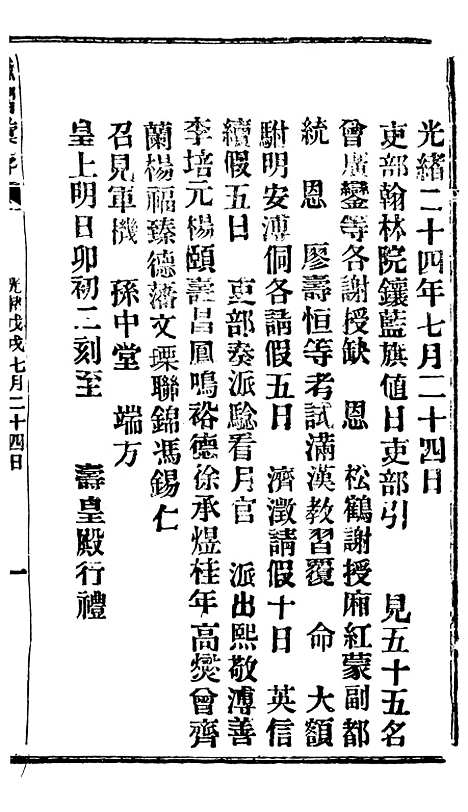 光緒二十四年七月二十四日
吏部翰林院鑲藍旗值日吏部引　見五十五名
曾廣鑾等各謝授缺　恩　松鶴謝授廂紅蒙副都
統　恩　廖壽恒等考試滿漢教習覆　命　大額
駙明安溥侗各請假五日　濟澂請假十日　英信
續假五日　吏部奏派驗看月官　派出熙敬溥善
李培元楊頤壽昌鳳鳴裕德徐承煜桂年高燮曾齊
蘭楊福臻德藩文瑮聯錦馮錫仁
召見軍機　孫中堂　端方
皇上明日卯初二刻至　壽皇殿行禮
光緒戊戌七月二十四日
一